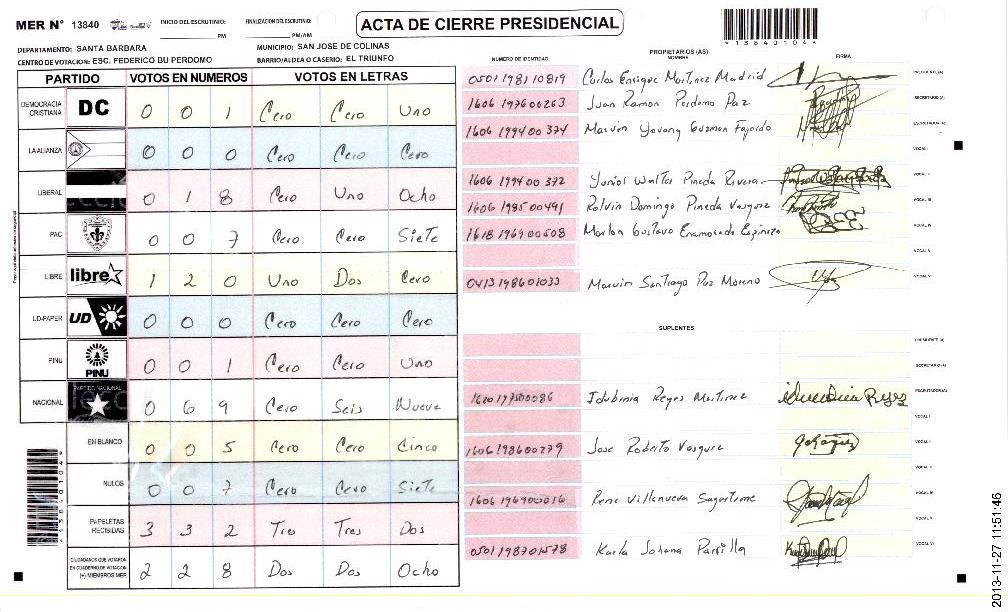 MER N° 13840
INICIO DEL ESCRUTINIO: PM
FINALIZACION DEL ESCRUTINIO: PM/AM
ACTA DE CIERRE PRESIDENCIAL
*13840104*
DEPARTAMENTO: SANTA BARBARA
MUNICIPIO: SAN JOSE DE COLINAS
CENTRO DE VOTACION: ESC. FEDERICO BU PERDOMO
BARRIO/ALDEA O CASERIO: EL TRIUNFO
PARTIDO VOTOS EN NUMEROS VOTOS EN LETRAS
DEMOCRACIA CRISTIANA DC 0 0 1 Cero Cero Uno
LA ALIANZA 0 0 0 Cero Cero Cero
LIBERAL 0 1 8 Cero Uno Ocho
PAC 0 0 7 Cero Cero Siete
LIBRE libre 1 2 0 Uno Dos Cero
UD-FAPER UD 0 0 0 Cero Cero Cero
PINU PINU 0 0 1 Cero Cero Uno
NACIONAL PARTIDO NACIONAL 0 6 9 Cero Seis Nueve
EN BLANCO 0 0 5 Cero Cero Cinco
NULOS 0 0 7 Cero Cero Siete
PAPELETAS RECIBIDAS 3 3 2 Tres Tres Dos
CIUDADANOS QUE VOTARON EN CUADERNO DE VOTACION (+) MIEMBROS MER 2 2 8 Dos Dos Ocho
PROPIETARIOS (AS)
NUMERO DE IDENTIDAD NOMBRE FIRMA
0501198110819 Carlos Enrique Martinez Madrid PRESIDENTE (A)
1606197600263 Juan Ramon Perdomo Paz SECRETARIO (A)
1606199400374 Marvin Yovany Guzman Fajardo ESCRUTADOR (A)
VOCAL I
1606199400372 Yunior Walter Pineda Rivera VOCAL II
1606198500491 Rolvin Domingo Pineda Vasquez VOCAL III
1618196900508 Marlon Gustavo Enamorado Espinoza VOCAL IV
VOCAL V
0413198601033 Marvin Santiago Paz Moreno VOCAL VI
SUPLENTES
PRESIDENTE (A)
SECRETARIO (A)
1620197500086 Idubinia Reyes Martinez ESCRUTADOR (A)
VOCAL I
1606198600279 Jose Roberto Vasquez VOCAL II
VOCAL III
1606196900016 Rene Villanueva Sagastume VOCAL IV
VOCAL V
0501198701578 Karla Johana Parrilla VOCAL VI
2013-11-27 11:51:46